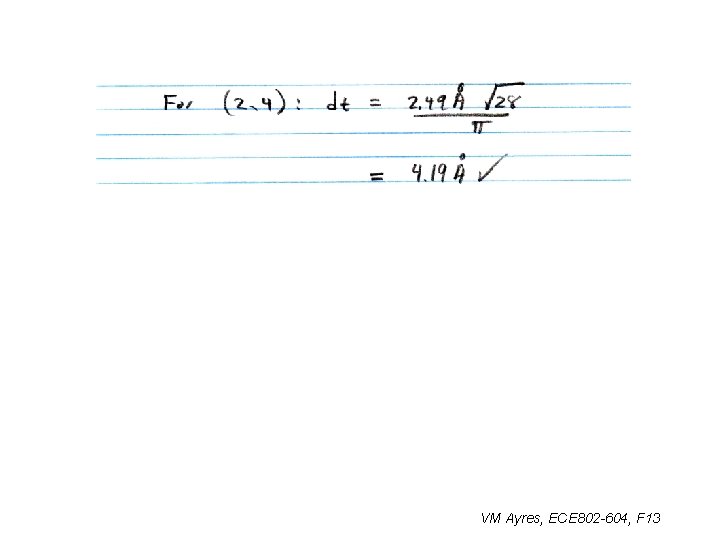 For (2,4): dt = 2.49 Å √28
π
= 4.19 Å ✓
VM Ayres, ECE802-604, F13